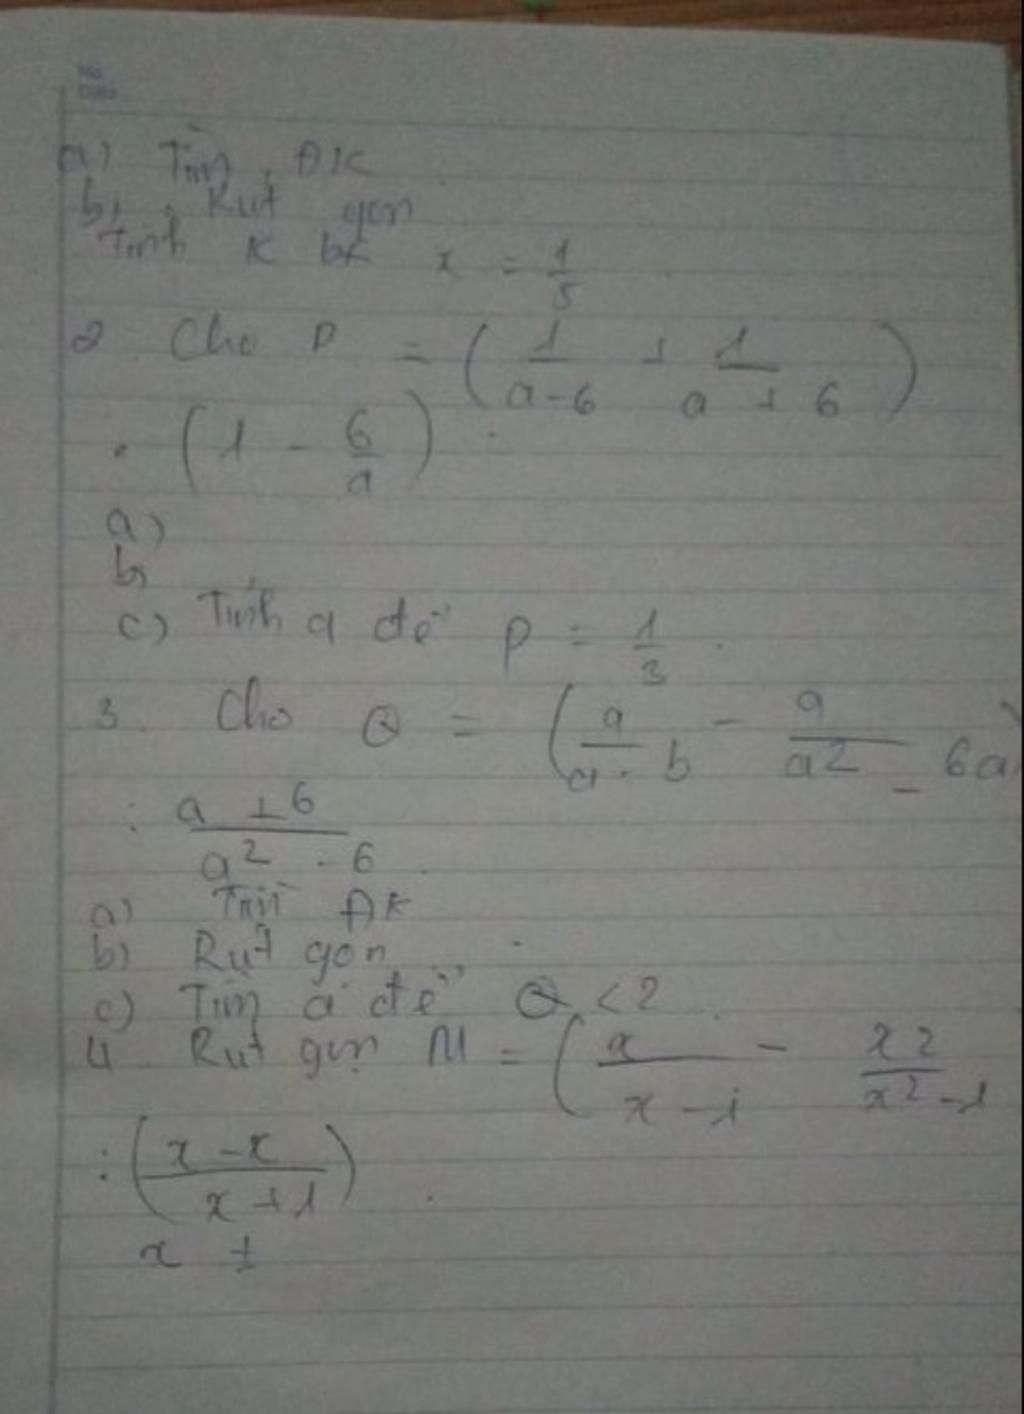 No.
Date
a) Tìm ĐK
b, Rut gọn
Tính K bt x = 1/5
2 Cho P = ( 1/(a-6) + 1/(a + 6) )
. ( 1 - 6/a )
a)
b,
c) Tính a để P = 1/3 .
3. Cho Q = ( a/(a - b) - a/(a2 - 6a) )
: (a + 6)/(a2 - 6)
a) Tìm ĐK
b) Rút gọn
c) Tìm a để Q < 2
4. Rut gọn M = ( x/(x - 1) - x2/(x2 - 1)
: ( (x - x)/(x + 1) )
x ±